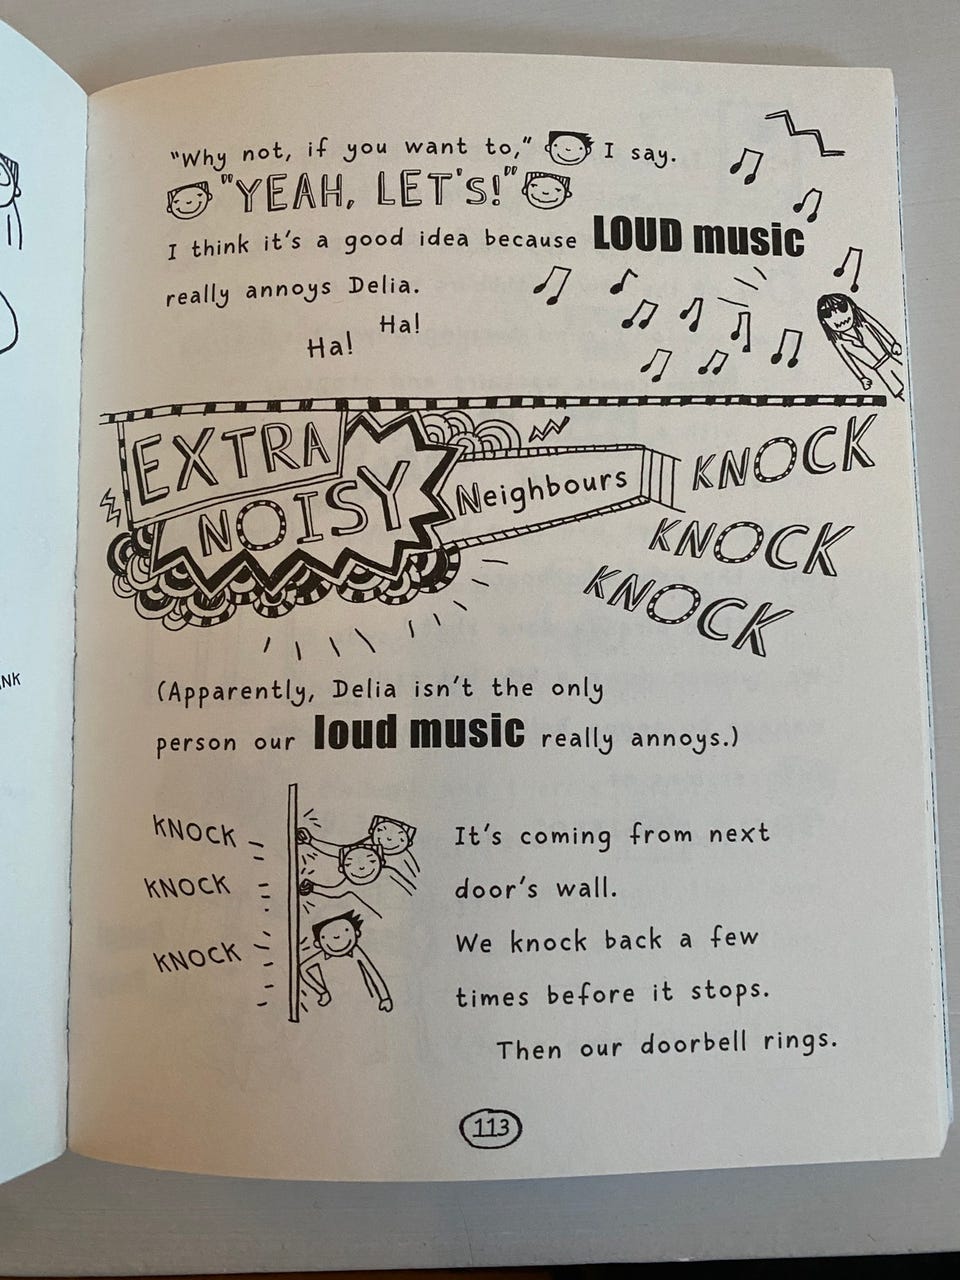 "Why not, if you want to," I say.
"YEAH, LET's!"
I think it's a good idea because LOUD music
really annoys Delia.
Ha!
Ha!
EXTRA
NOISY
Neighbours
KNOCK
KNOCK
KNOCK
(Apparently, Delia isn't the only
person our loud music really annoys.)
KNOCK
KNOCK
KNOCK
It's coming from next
door's wall.
We knock back a few
times before it stops.
Then our doorbell rings.
113